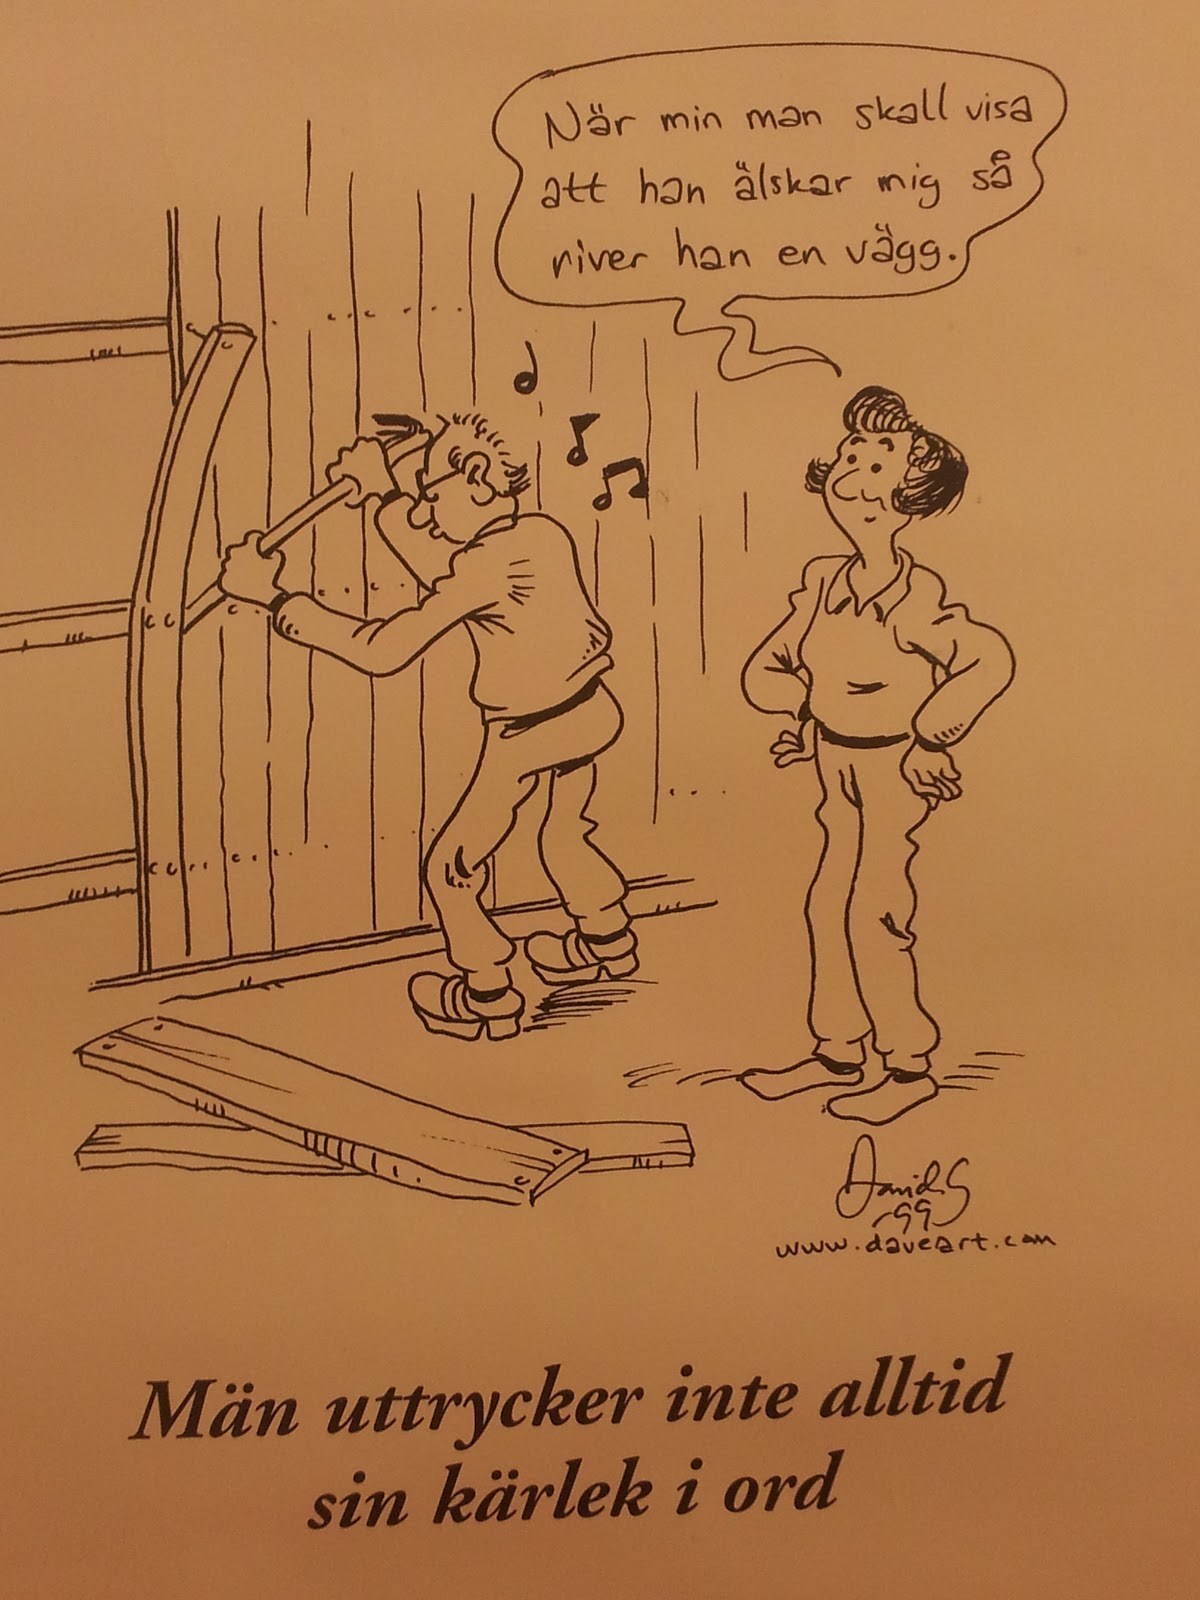 När min man skall visa
att han älskar mig så
river han en vägg.
David S
-99
www.daveart.com
Män uttrycker inte alltid
sin kärlek i ord